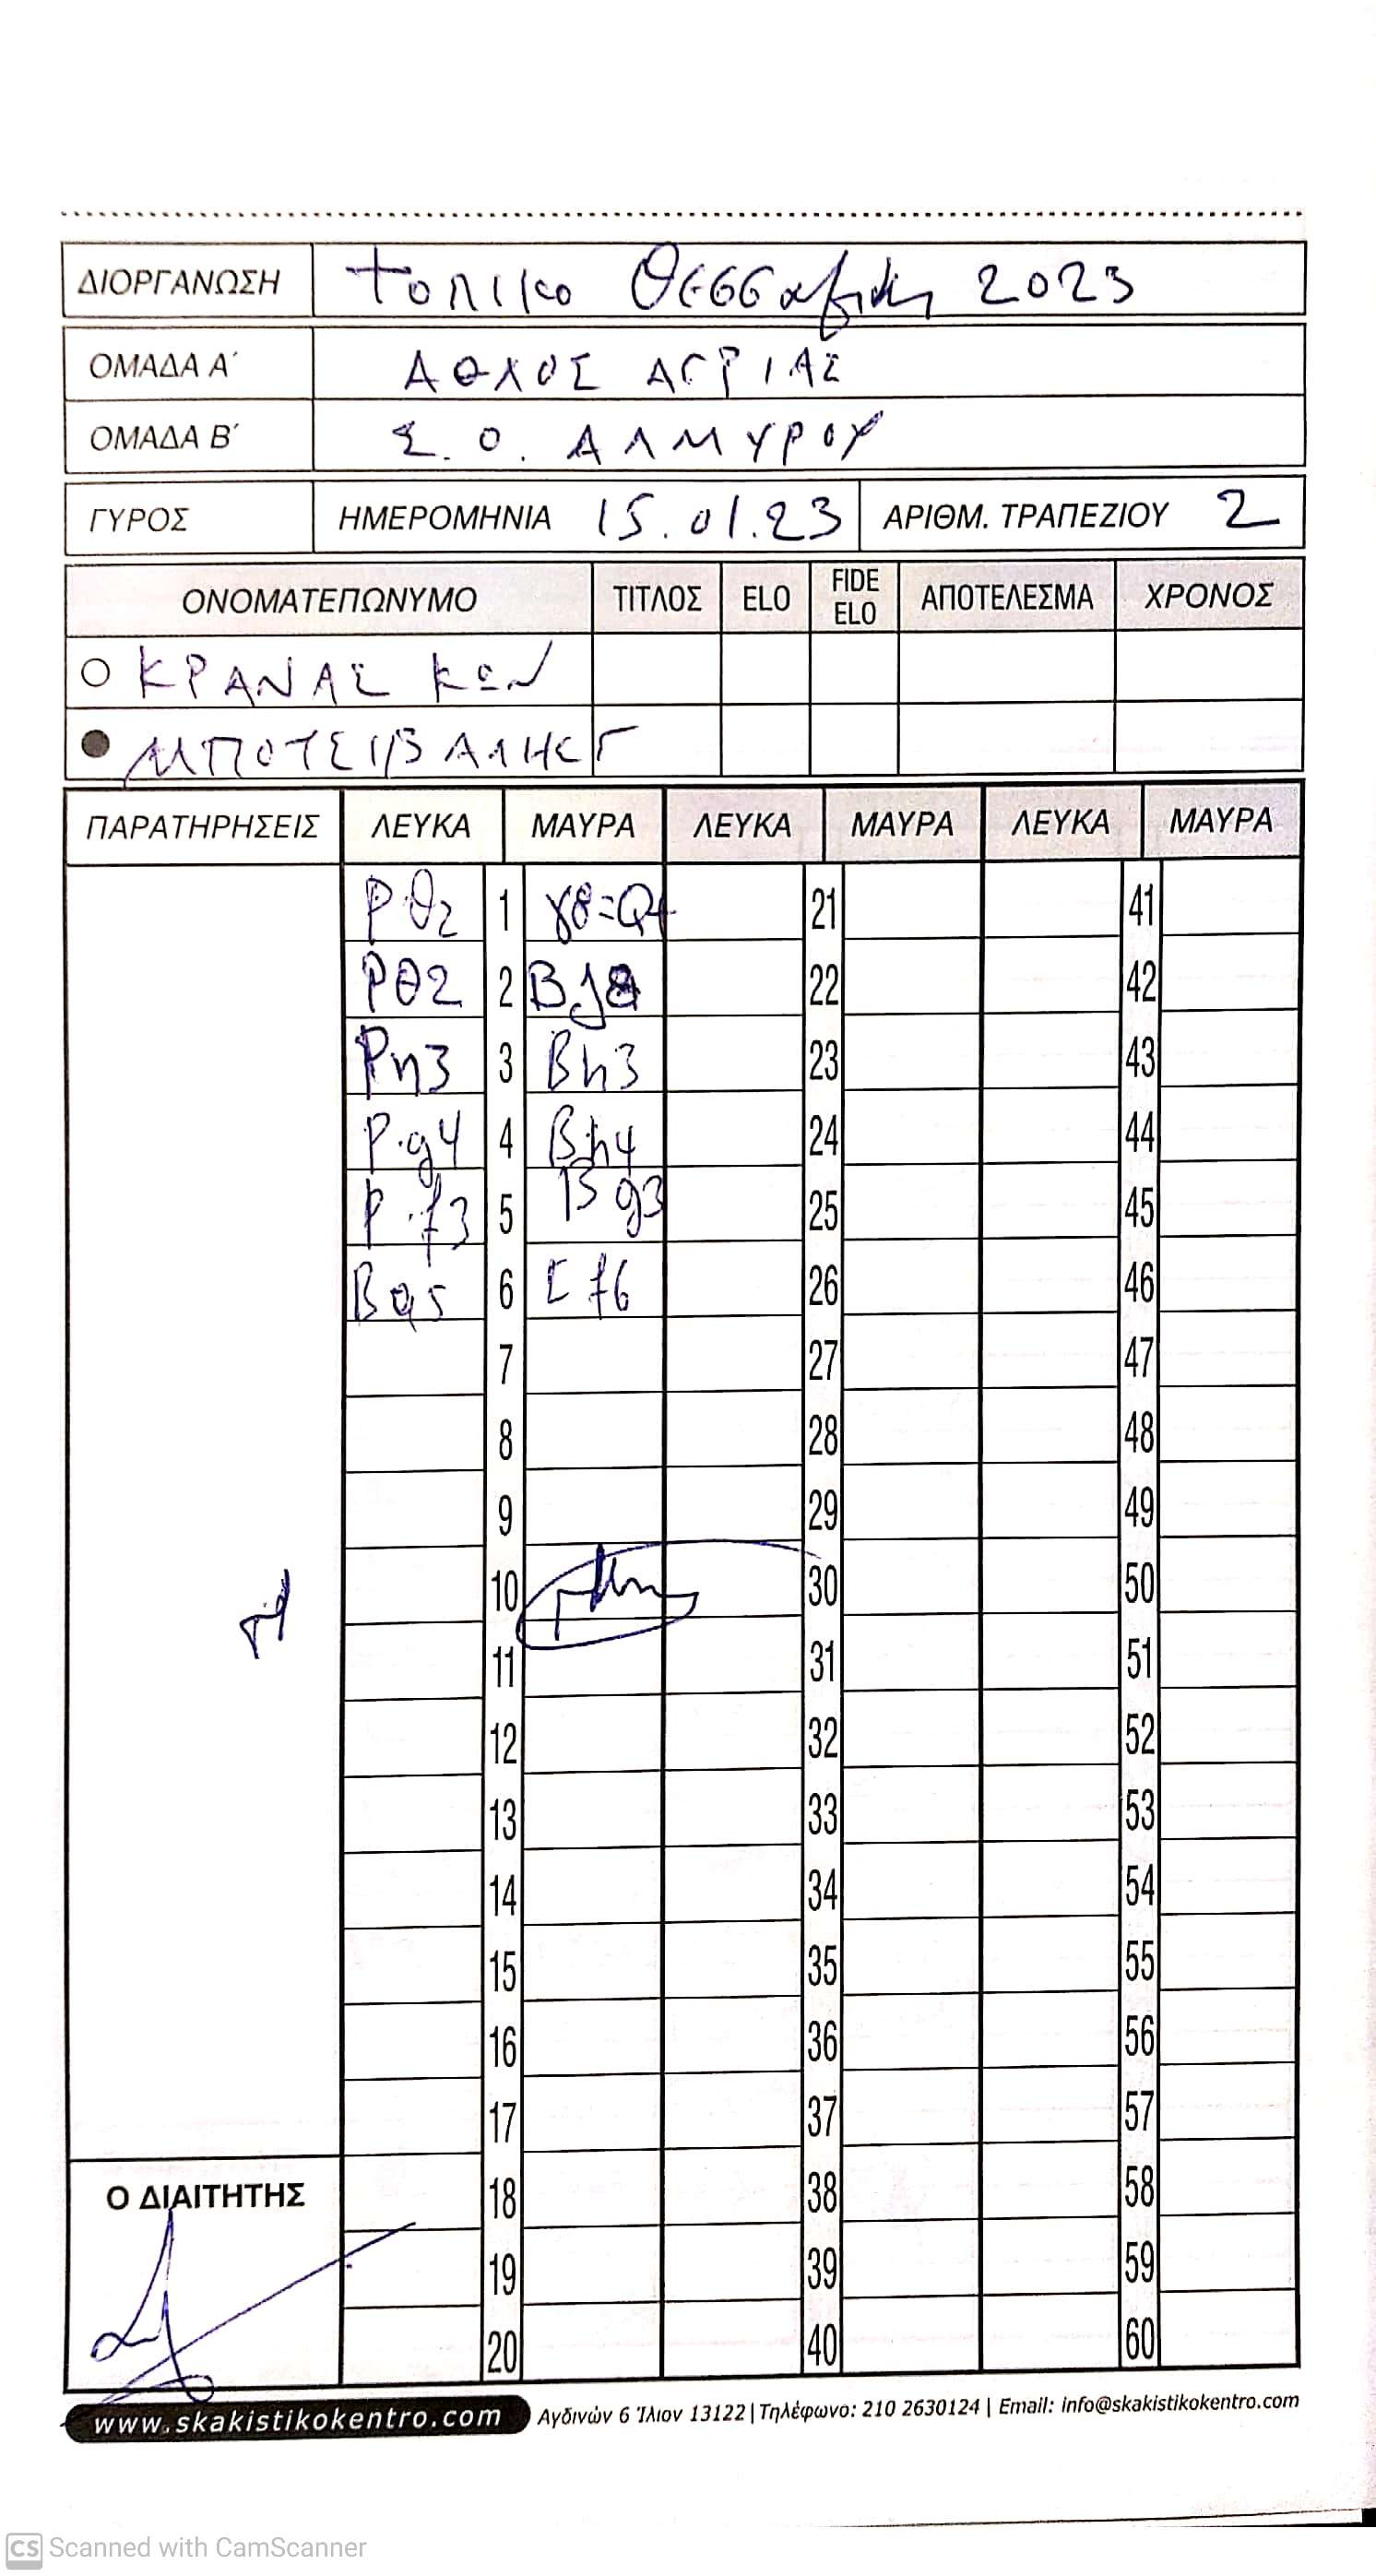 ΔΙΟΡΓΑΝΩΣΗ τοπικο Θεσσαλιας 2023
ΟΜΑΔΑ Α΄ ΑΘΛΟΣ ΑΓΡΙΑΣ
ΟΜΑΔΑ Β΄ Σ.Ο. ΑΛΜΥΡΟΥ
ΓΥΡΟΣ ΗΜΕΡΟΜΗΝΙΑ 15.01.23 ΑΡΙΘΜ. ΤΡΑΠΕΖΙΟΥ 2
ΟΝΟΜΑΤΕΠΩΝΥΜΟ ΤΙΤΛΟΣ ELO FIDE ELO ΑΠΟΤΕΛΕΣΜΑ ΧΡΟΝΟΣ
ΚΡΑΝΑΣ ΚΩΝ
ΜΠΟΤΣΙΒΑΛΗΣ Γ
ΠΑΡΑΤΗΡΗΣΕΙΣ ΛΕΥΚΑ ΜΑΥΡΑ ΛΕΥΚΑ ΜΑΥΡΑ ΛΕΥΚΑ ΜΑΥΡΑ
Ρθ2 1 γ8=Q+ 21 41
Ρθ2 2 Β.g8 22 42
Ρη3 3 Βh3 23 43
Ρ.g4 4 Βh4 24 44
Ρ.f3 5 Βg3 25 45
Βa5 6 Σf6 26 46
7 27 47
8 28 48
9 29 49
10 30 50
11 31 51
12 32 52
13 33 53
14 34 54
15 35 55
16 36 56
17 37 57
Ο ΔΙΑΙΤΗΤΗΣ 18 38 58
19 39 59
20 40 60
www.skakistikokentro.com Αγδινών 6 Ίλιον 13122 | Τηλέφωνο: 210 2630124 | Email: info@skakistikokentro.com
CS Scanned with CamScanner